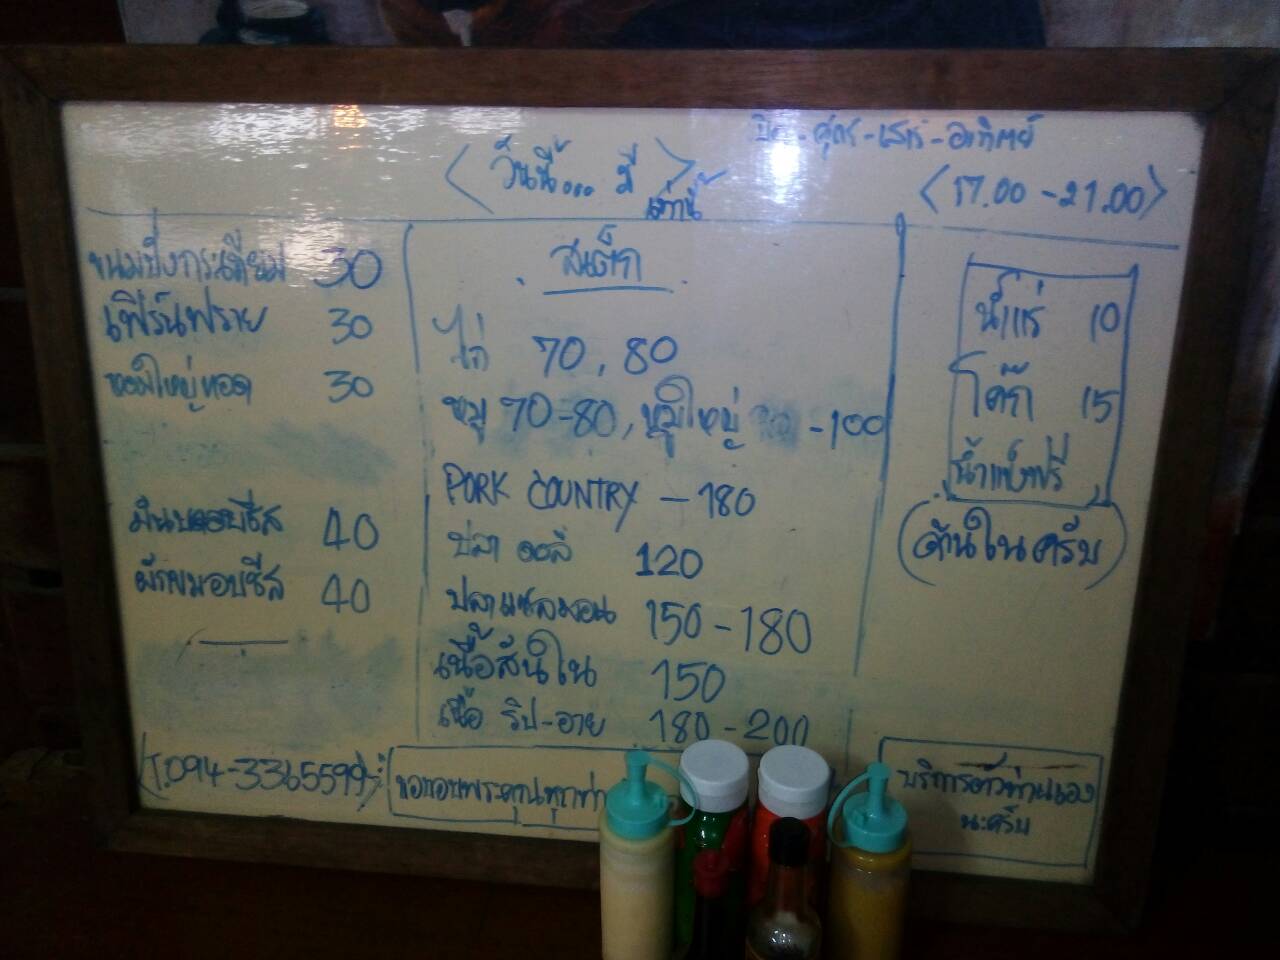 <วันนี้... มี>
เท่านี้
ศุกร์-เสาร์-อาทิตย์
<17.00-21.00>
ขนมปังกระเทียม 30
เฟร้นฟราย 30
หอมใหญ่ทอด 30
มันบดอบชีส 40
ผักขมอบชีส 40
สเต็ก
ไก่ 70, 80
หมู 70-80, หมูใหญ่ -100
PORK COUNTRY - 180
ปลา ดอลี่ 120
ปลาแซลมอน 150-180
เนื้อสันใน 150
เนื้อ ริป-อาย 180-200
น้ำแร่ 10
โค๊ก 15
น้ำแข็งฟรี
(ด้านในครับ)
(T.094-3365599)
ขอขอบพระคุณทุกท่า
บริการตัวท่านเอง
นะครับ